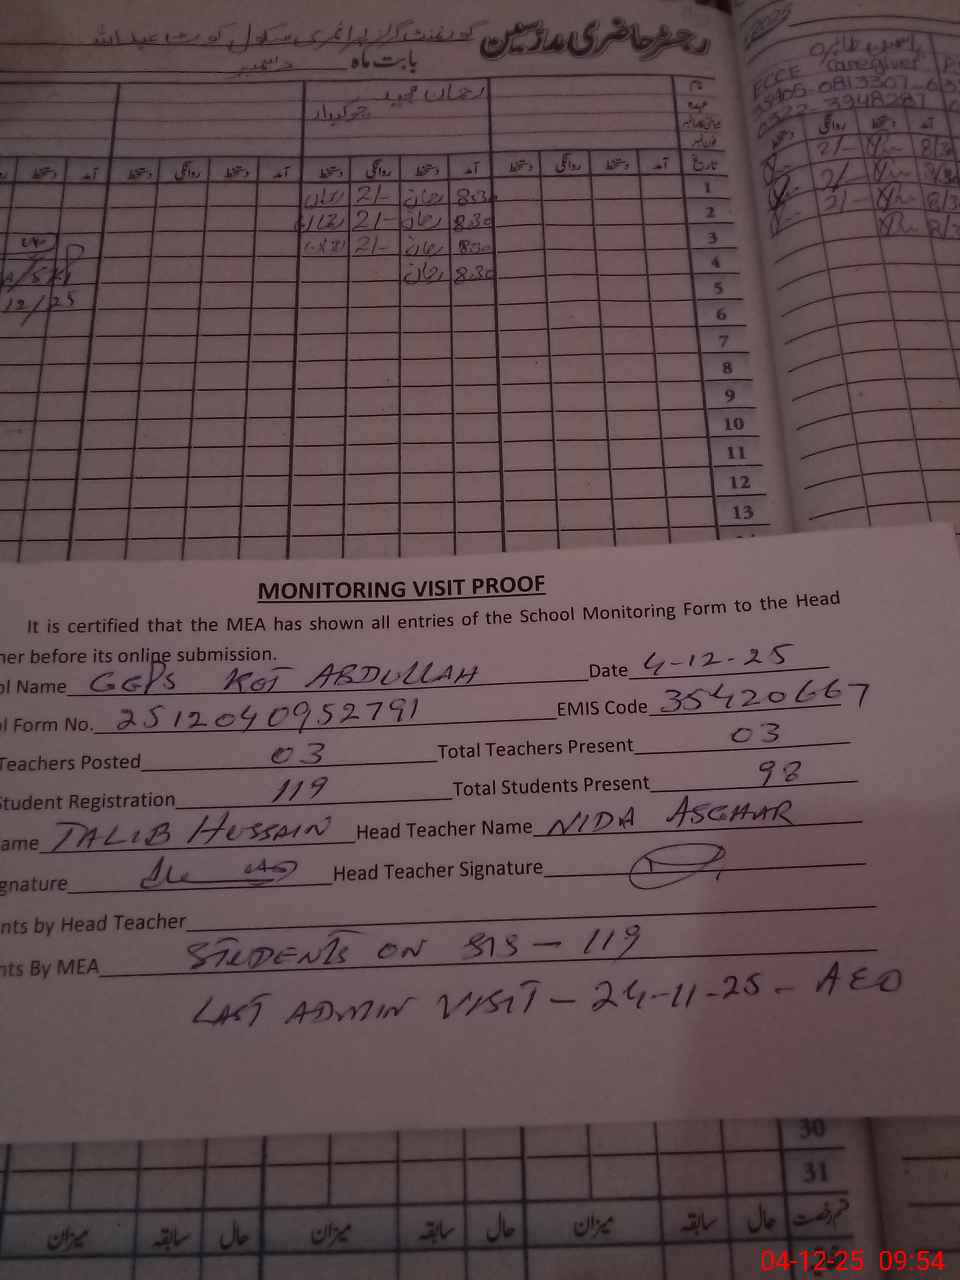 رجسٹر حاضری مدرسین گورنمنٹ گرلز پرائمری سکول کوٹ عبداللہ
بابت ماہ دسمبر
2025
ECCE Caregiver
35405-0813307-6
0322-3948287
چوکیدار
تاریخ آمد دستخط روانگی دستخط آمد دستخط روانگی دستخط آمد دستخط روانگی دستخط آمد دستخط
آمد دستخط روانگی دستخط
1 8:30 2/-
2 8:30 2/-
3 8:30 2/-
4 8:30
5
6
7
8
9
10
11
12
13
12/25
MONITORING VISIT PROOF
It is certified that the MEA has shown all entries of the School Monitoring Form to the Head
her before its online submission.
ol Name GGPS KOT ABDULLAH Date 4-12-25
ol Form No. 2512040952791 EMIS Code 35420667
Teachers Posted 03 Total Teachers Present 03
Student Registration 119 Total Students Present 98
ame TALIB HUSSAIN Head Teacher Name NIDA ASGHAR
gnature Head Teacher Signature
nts by Head Teacher
nts By MEA STUDENTS ON SIS - 119
LAST ADMIN VISIT - 24-11-25 - AEO
30
31
قسم رخصت حال سابقہ میزان حال سابقہ میزان حال سابقہ میزان
04-12-25 09:54